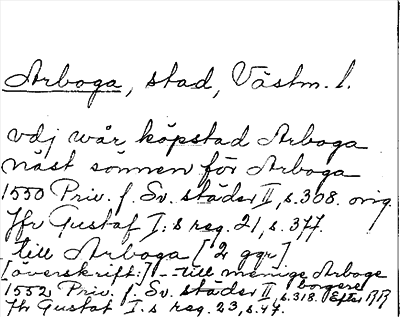 Arboga, stad, Västm. l.
vdj wår köpstad Arboga
näst sönnen för Arboga
1550 Priv. f. Sv. städer II, s. 308. orig.
Jfr Gustaf I:s reg. 21, s. 377.
till Arboga [2 ggr]
[överskrift:] - till menige Arboge
borgere
1552 Priv. f. Sv. städer II, s. 318. Efter RR
Jfr Gustaf I:s reg. 23, s. 47.